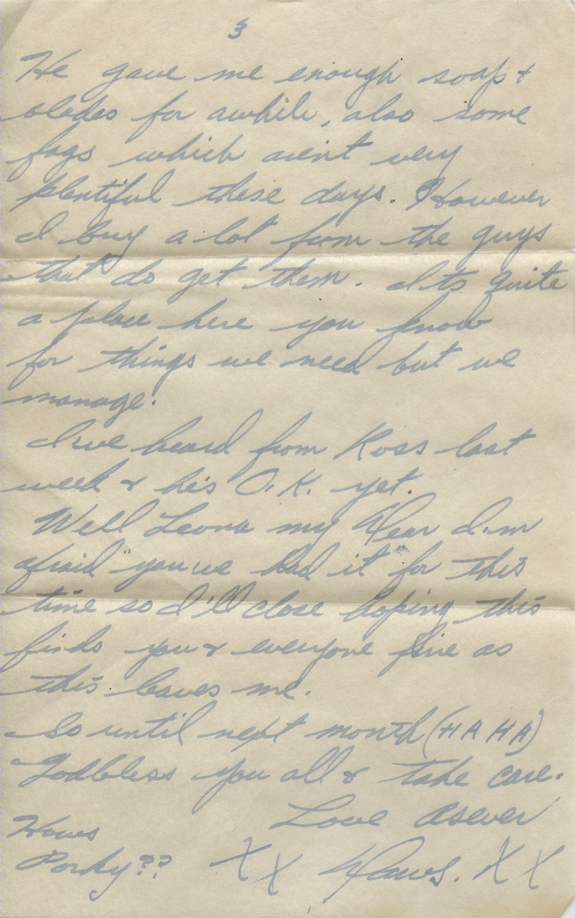 3
He gave me enough soap &
blades for awhile, also some
fags which arent very
plentiful these days. However
I buy a lot from the guys
that do get them. Its quite
a place here you know
for things we need but we
manage.
I've heard from Ross last
week & his O.K. yet.
Well Leona my Dear I'm
afraid "you've had it" for this
time so I'll close hoping this
finds you & everyone fine as
this leaves me.
So until next month (HAHA)
Godbless you all & take care.
Love asever
Hows
Porky?? XX XX